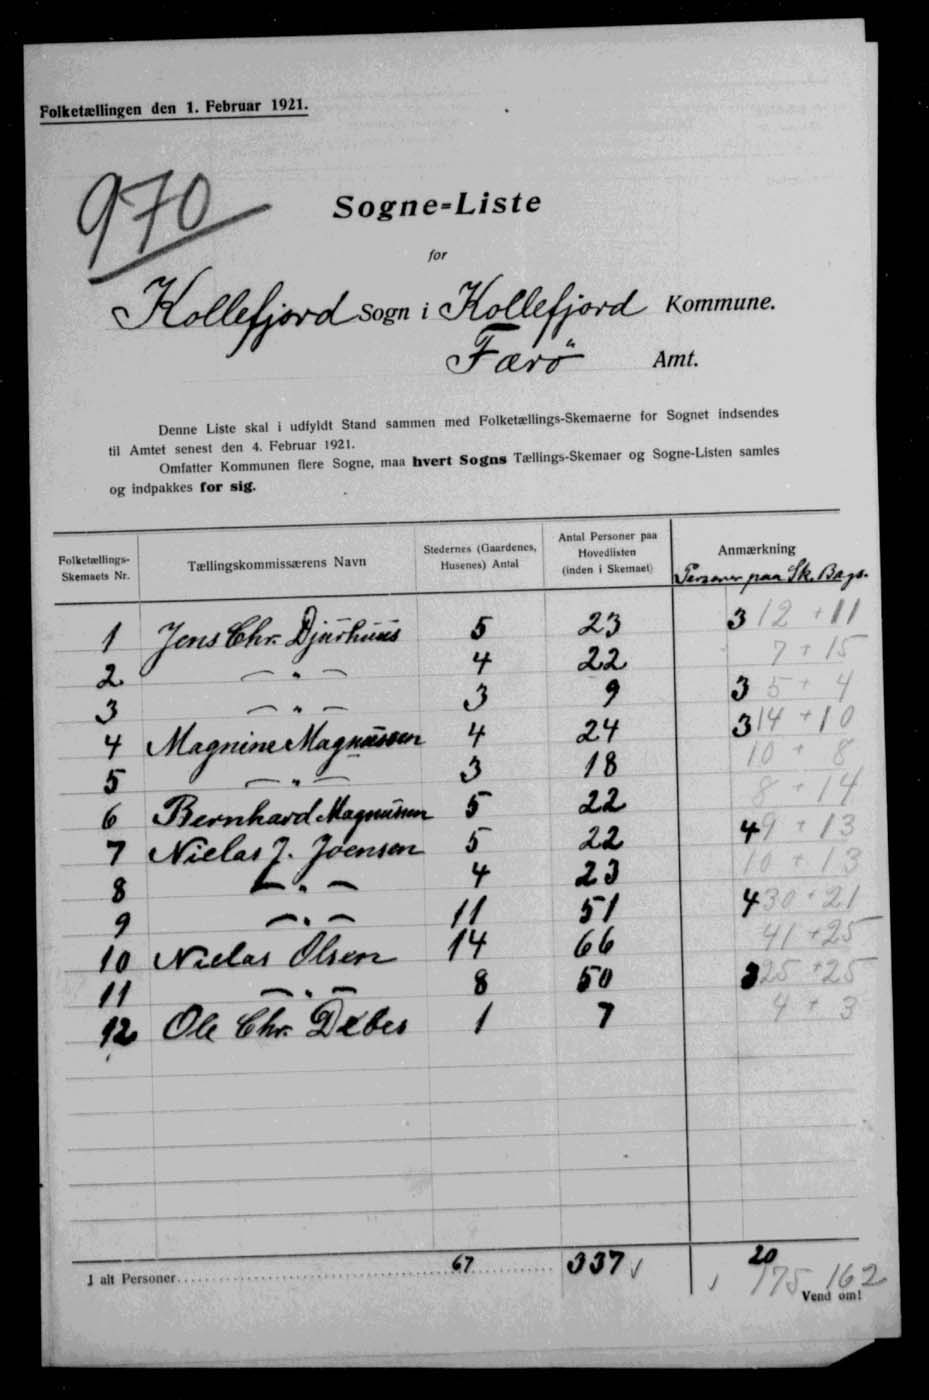 Folketællingen den 1. Februar 1921.
970
Sogne-Liste
for
Kollefjord Sogn i Kollefjord Kommune.
Færø Amt.
Denne Liste skal i udfyldt Stand sammen med Folketællings-Skemaerne for Sognet indsendes
til Amtet senest den 4. Februar 1921.
Omfatter Kommunen flere Sogne, maa hvert Sogns Tællings-Skemaer og Sogne-Listen samles
og indpakkes for sig.
Folketællings-Skemaets Nr. Tællingskommissærens Navn Stedernes (Gaardenes, Husenes) Antal Antal Personer paa Hovedlisten (inden i Skemaet) Anmærkning
Personer paa Sk. Bags.
1 Jens Chr. Djurhuus 5 23 3 12 + 11
2 — " — 4 22 7 + 15
3 — " — 3 9 3 5 + 4
4 Magnine Magnussen 4 24 3 14 + 10
5 — " — 3 18 10 + 8
6 Bernhard Magnussen 5 22 8 + 14
7 Nielas J. Joensen 5 22 4 9 + 13
8 — " — 4 23 10 + 13
9 — " — 11 51 4 30 + 21
10 Nielas Olsen 14 66 41 + 25
11 — " — 8 50 3 25 + 25
12 Ole Chr. Debes 1 7 4 + 3
I alt Personer 67 337 20
175 162
Vend om!